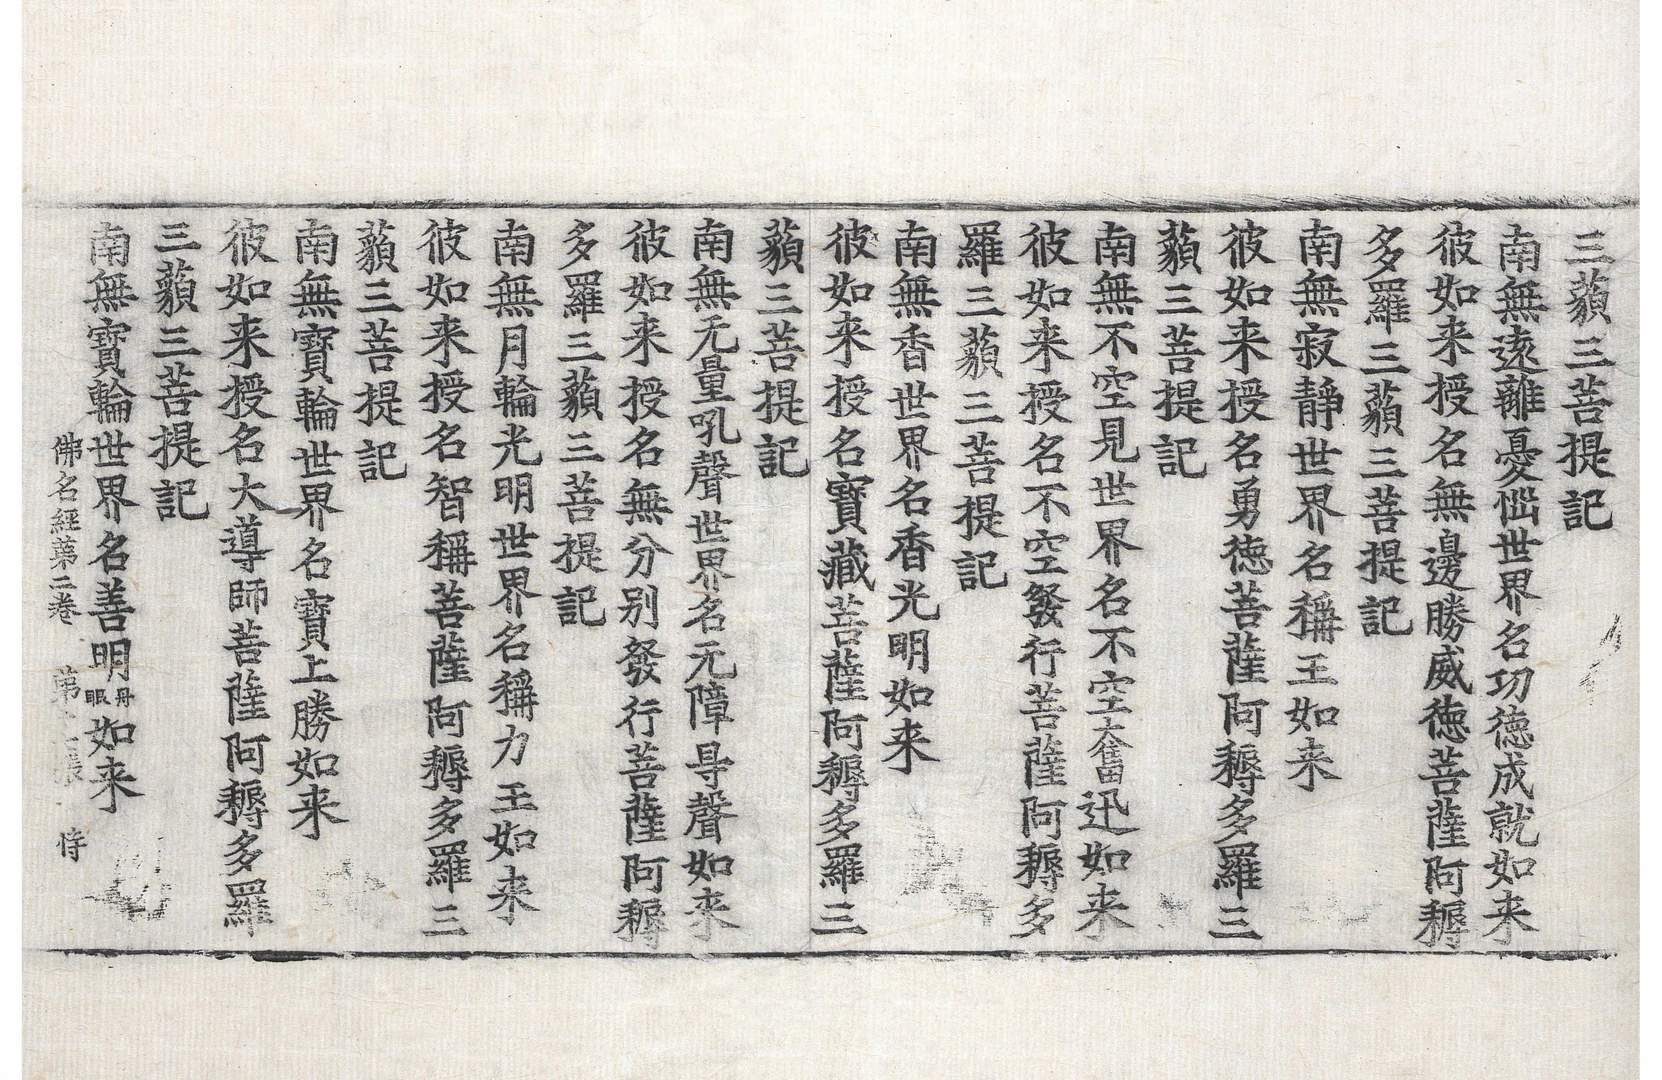 三藐三菩提記
南無遠離憂惱世界名功德成就如来
彼如来授名無邊勝威德菩薩阿耨
多羅三藐三菩提記
南無寂靜世界名稱王如来
彼如来授名勇德菩薩阿耨多羅三
藐三菩提記
南無不空見世界名不空奮迅如来
彼如来授名不空發行菩薩阿耨多
羅三藐三菩提記
南無香世界名香光明如来
彼如来授名寶藏菩薩阿耨多羅三
藐三菩提記
南無无量吼聲世界名无障㝵聲如来
彼如来授名無分别發行菩薩阿耨
多羅三藐三菩提記
南無月輪光明世界名稱力王如来
彼如来授名智稱菩薩阿耨多羅三
藐三菩提記
南無寶輪世界名寶上勝如来
彼如来授名大導師菩薩阿耨多羅
三藐三菩提記
南無寶輪世界名善明丹眼如来
佛名經第二卷 第 張 侍